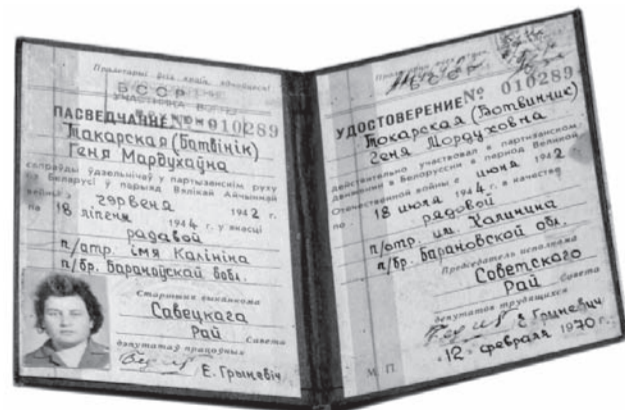 Пралетарыі ўсіх краін, яднайцеся!
БССР
УЧАСТНИКА ВОЙНЫ
ПАСВЕДЧАННЕ № 010289
Такарская (Батвінік)
Геня Мардухаўна
сапраўды ўдзельнічаў у партызанскім руху
на Беларусі ў перыяд Вялікай Айчыннай
вайны з чэрвеня 1942 г.
па 18 ліпеня 1944 г. у якасці
радавой
п/атр. імя Калініна
п/бр. Баранаўскай вобл.
Старшыня выканкома
Савецкага
Рай Савета
дэпутатаў працоўных
Е. Грыневіч
БССР
УДОСТОВЕРЕНИЕ № 010289
Токарская (Ботвинник)
Геня Мордуховна
действительно участвовал в партизанском
движении в Белоруссии в период Великой
Отечественной войны с июня 1942 г.
по 18 июля 1944 г. в качестве
рядовой
п/отр. им. Калинина
п/бр. Барановской обл.
Председатель исполкома
Советского
Рай Совета
депутатов трудящихся
Е. Гриневич
"12" февраля 1970 г.
М. П.